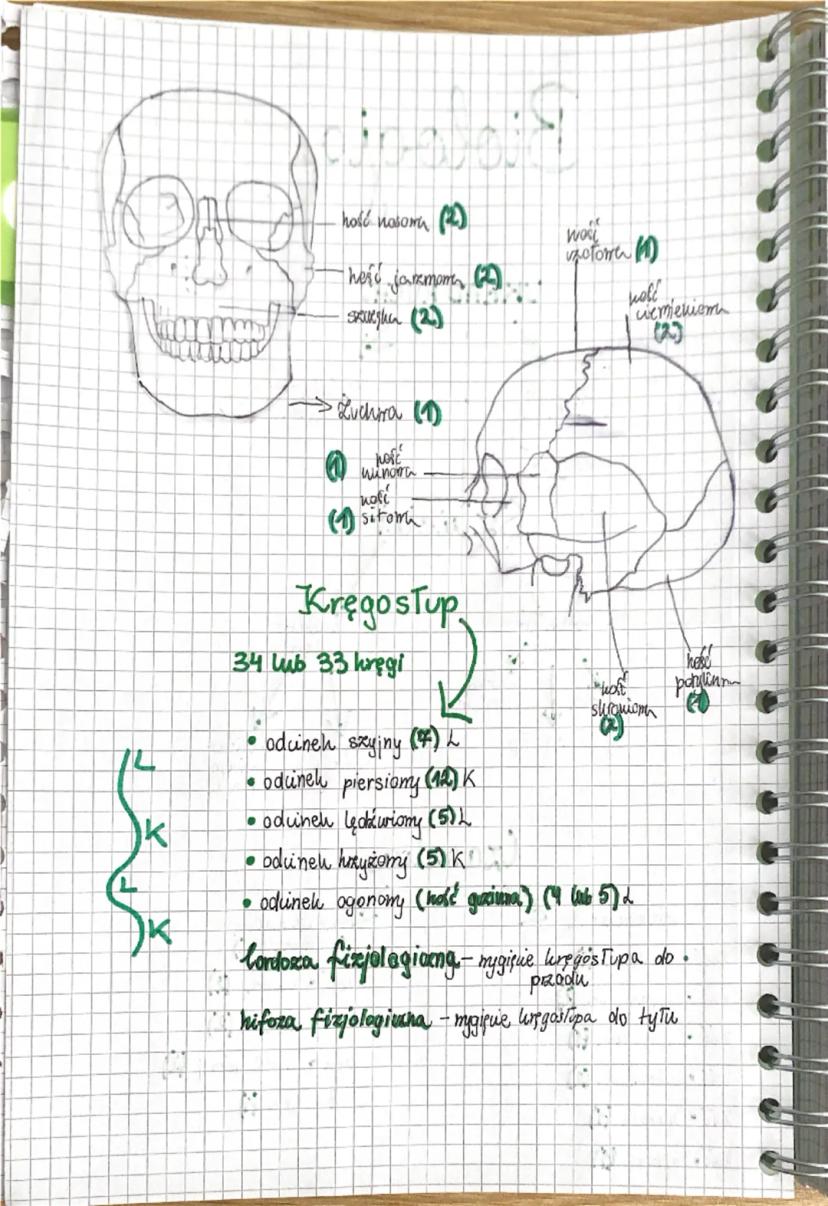 kość nosowa (2)
kość jarzmowa (2)
szczęka (2)
żuchwa (1)
kość
czołowa (1)
kość
ciemieniowa
(2)
(1) kość
klinowa
kość
(1) sitowa
kość
skroniowa
(2)
kość
potyliczna
(1)
Kręgosłup
34 lub 33 kręgi
• odcinek szyjny (7) L
• odcinek piersiowy (12) K
• odcinek lędźwiowy (5) L
• odcinek krzyżowy (5) K
• odcinek ogonowy (kość guziczna) (4 lub 5) L
L
K
L
K
lordoza fizjologiczna – wygięcie kręgosłupa do
przodu
kifoza fizjologiczna – wygięcie kręgosłupa do tyłu